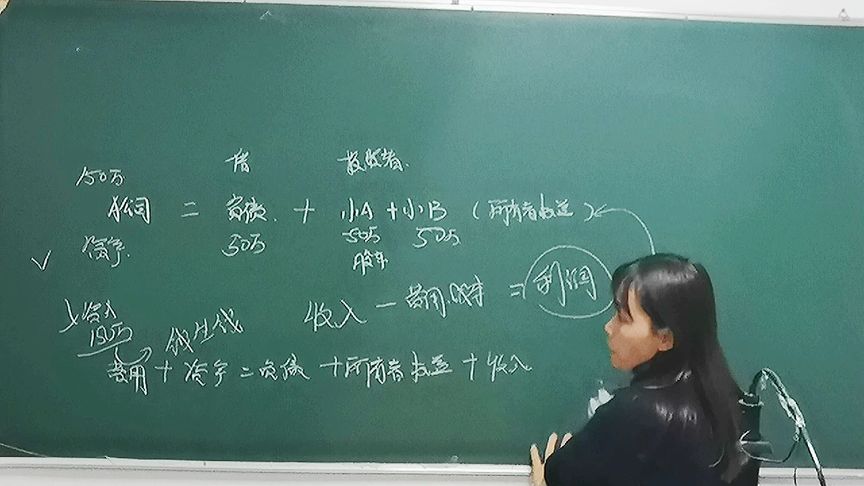 借 投资者
150万
公司 = 负债 + 小A + 小B (所有者权益)
资产 50万 50万 50万
股东
收入 - 费用 成本 = 利润
投入
150万 钱生钱
费用 + 资产 = 负债 + 所有者权益 + 收入